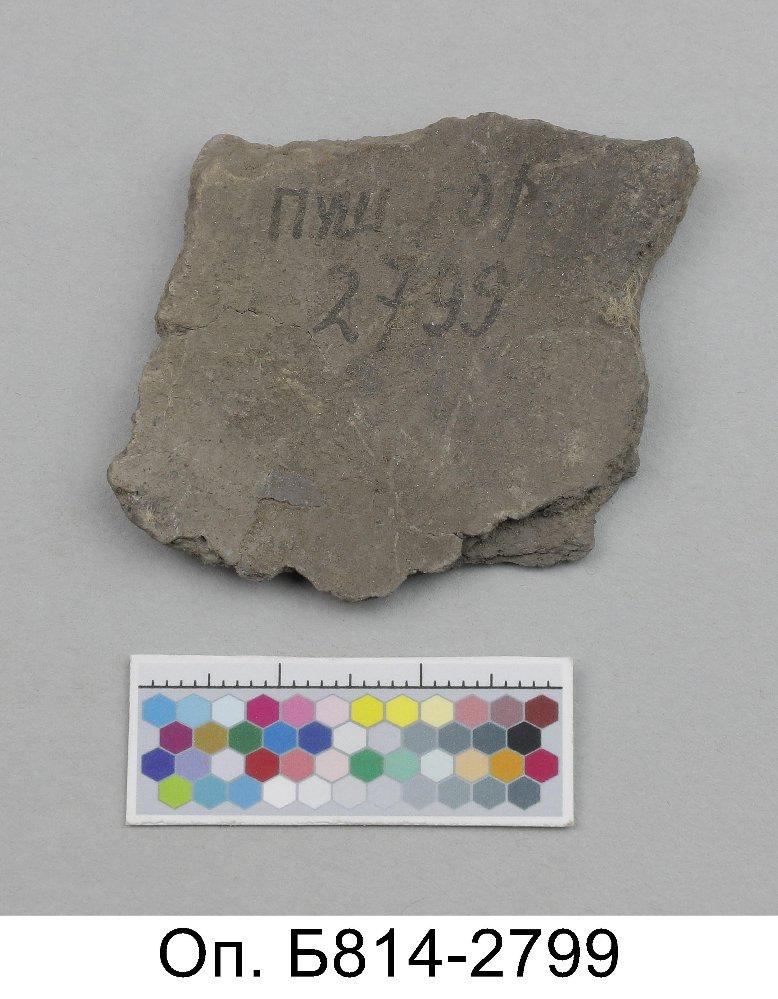 ПУШ ГОР
2799
Оп. Б814-2799